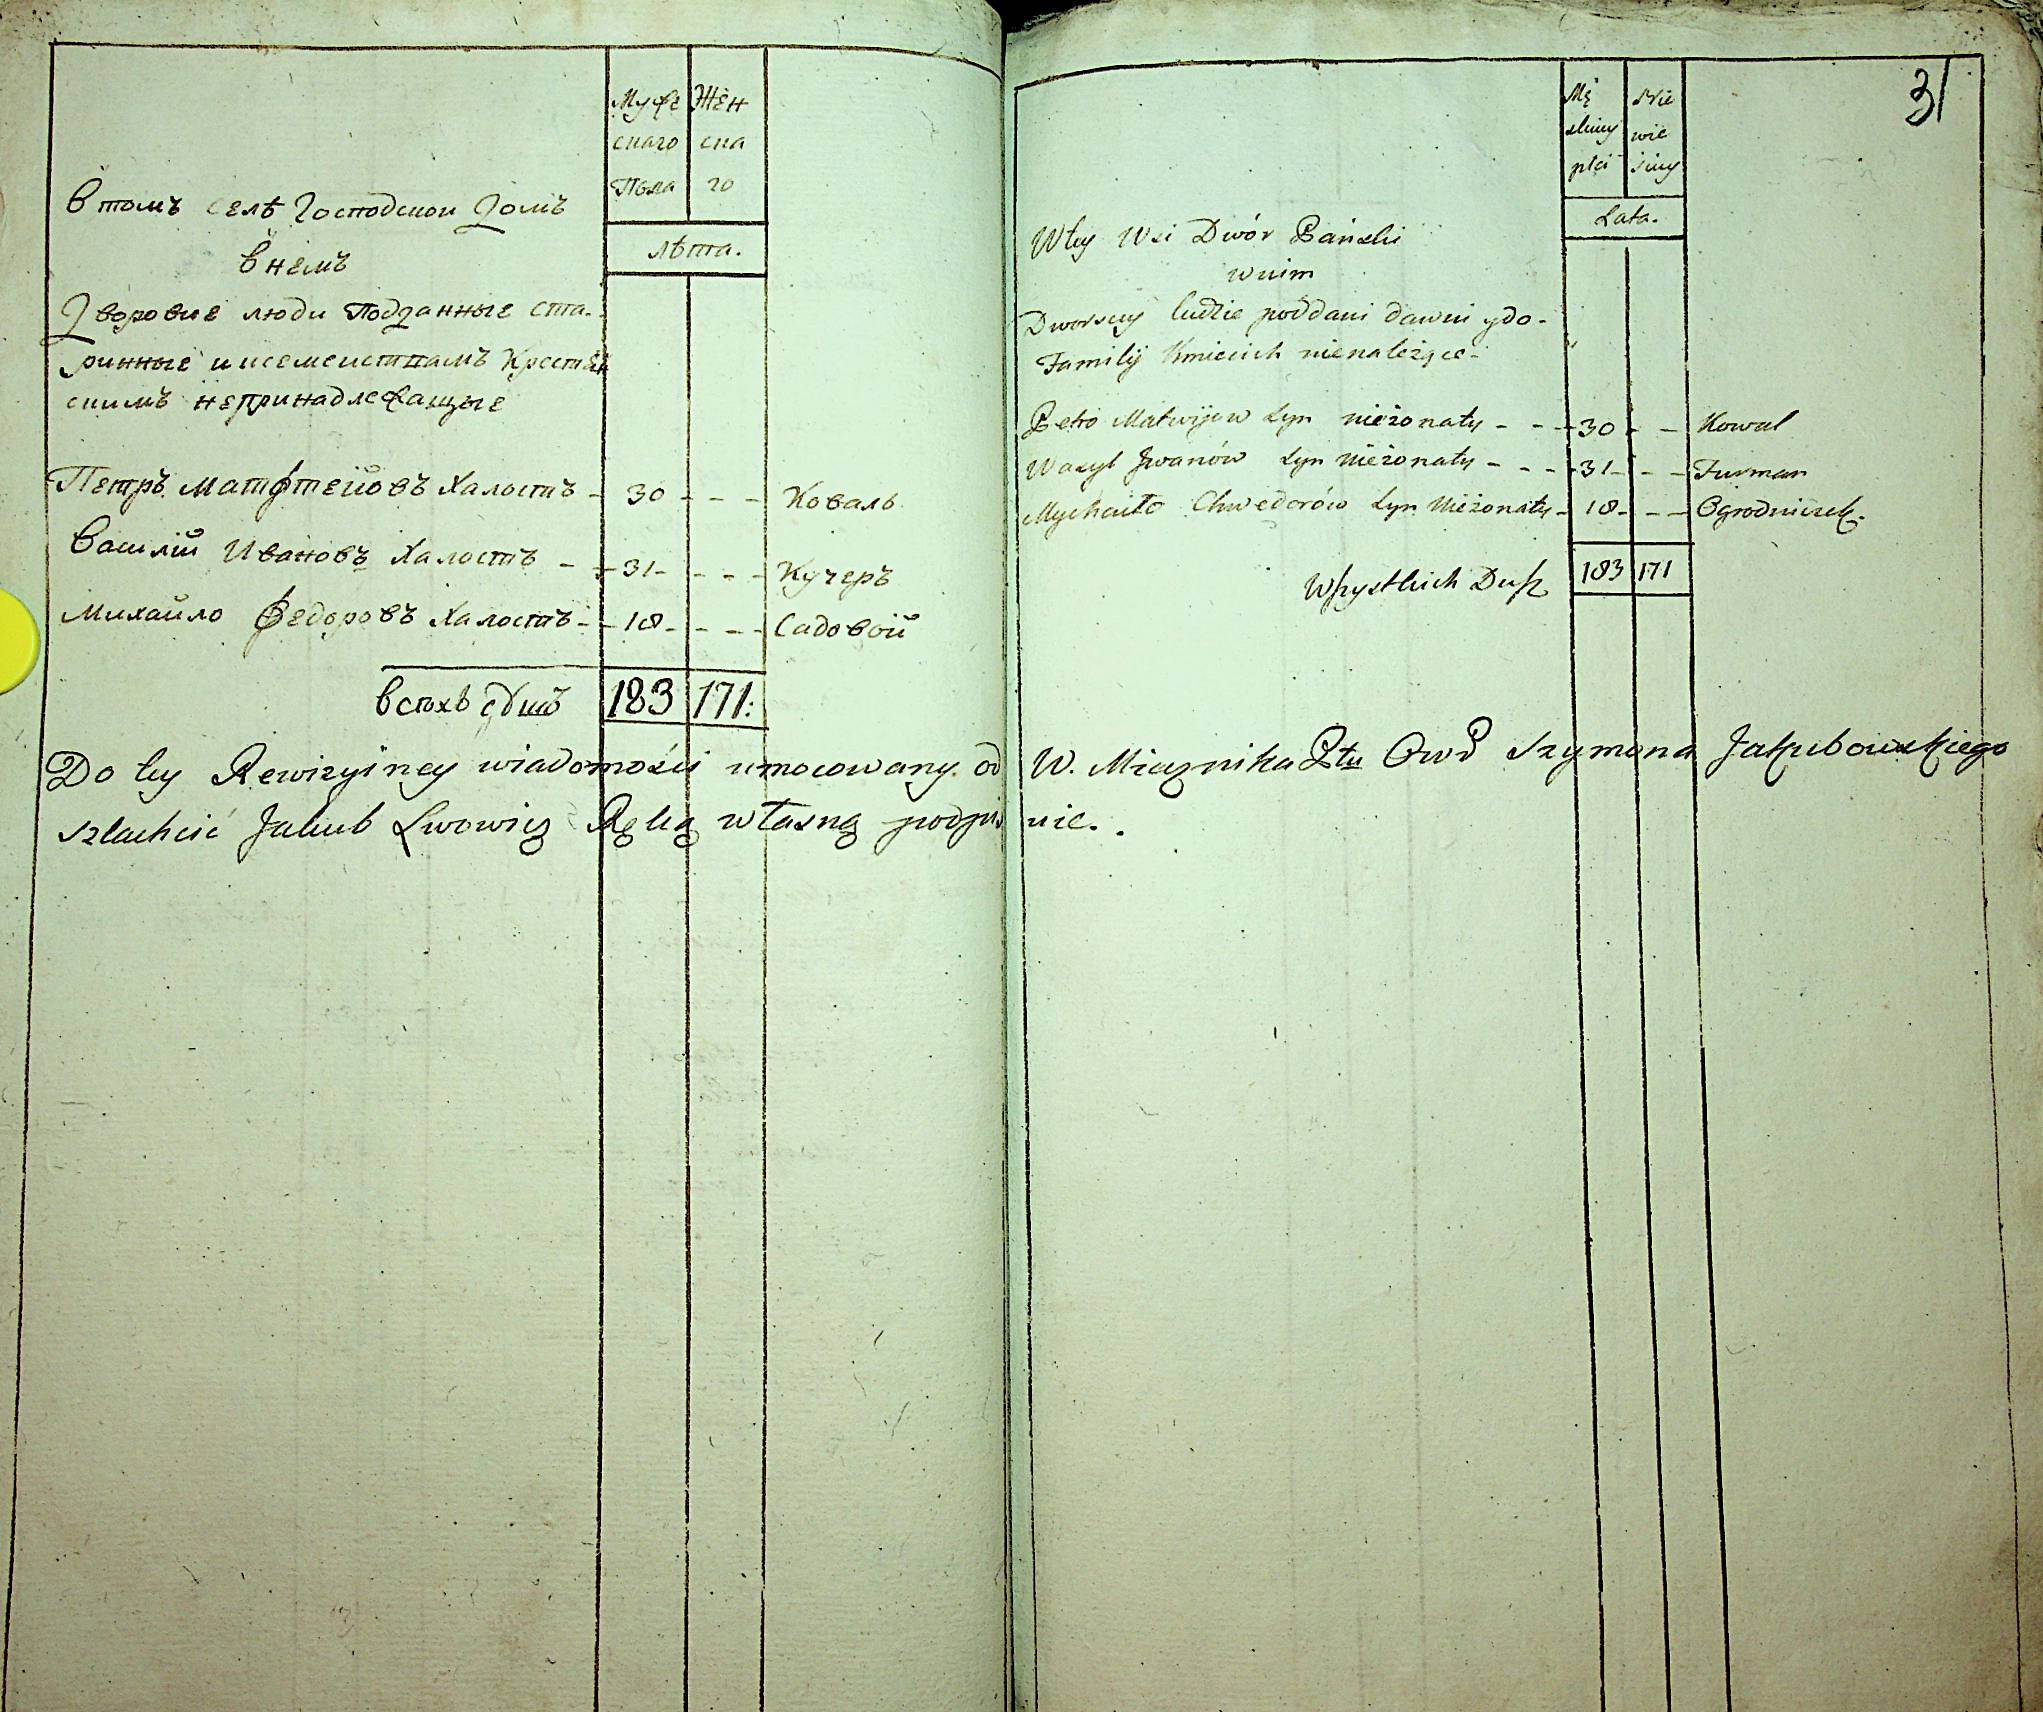 Муже Жен
скаго ска
Пола го
лѣта.
в томъ селѣ Господскои Домъ
в немъ
Дворовие люди Подданные ста-
ринные и ксемеиствамъ Крестян
скимъ непринадлежащые
Петръ Матфтеиовъ Халостъ - 30 - - - Коваль
Василий Ивановъ Халостъ - - 31 - - - - Кучеръ
Михайло Федоровъ Халостъ - - 18 - - - - Садовой
всѣхъ душъ 183 171:
31
Mę Nie
skiuy wie
płci sciuy
Lata.
W tey Wsi Dwór Pański
w nim
Dworscy ludzie poddani dawni y do-
Familij Kmiecich nienależące-
Petro Matwijow Syn nieżonaty - - - 30 - - Kowal
Wasyl Jwanów Syn Nieżonaty - - - 31 - - - Furman
Mychaiło Chwedorów Syn Nieżonaty - 18 - - - Ogrodniczek.
Wszystkich Dusz 183 171
Do tey Rewizyiney wiadomości umocowany od W. Miecznika Ptu Owr Szymona Jakubowskiego
szlachcic Jakub Lwowicz Ręką własną podpisuie.